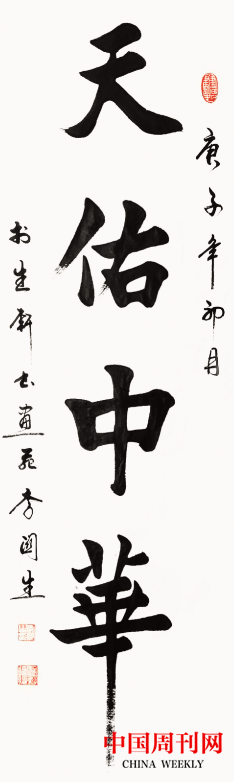 庚子年初月
天佑中華
於生軒书画苑李国生
中国周刊网
CHINA WEEKLY